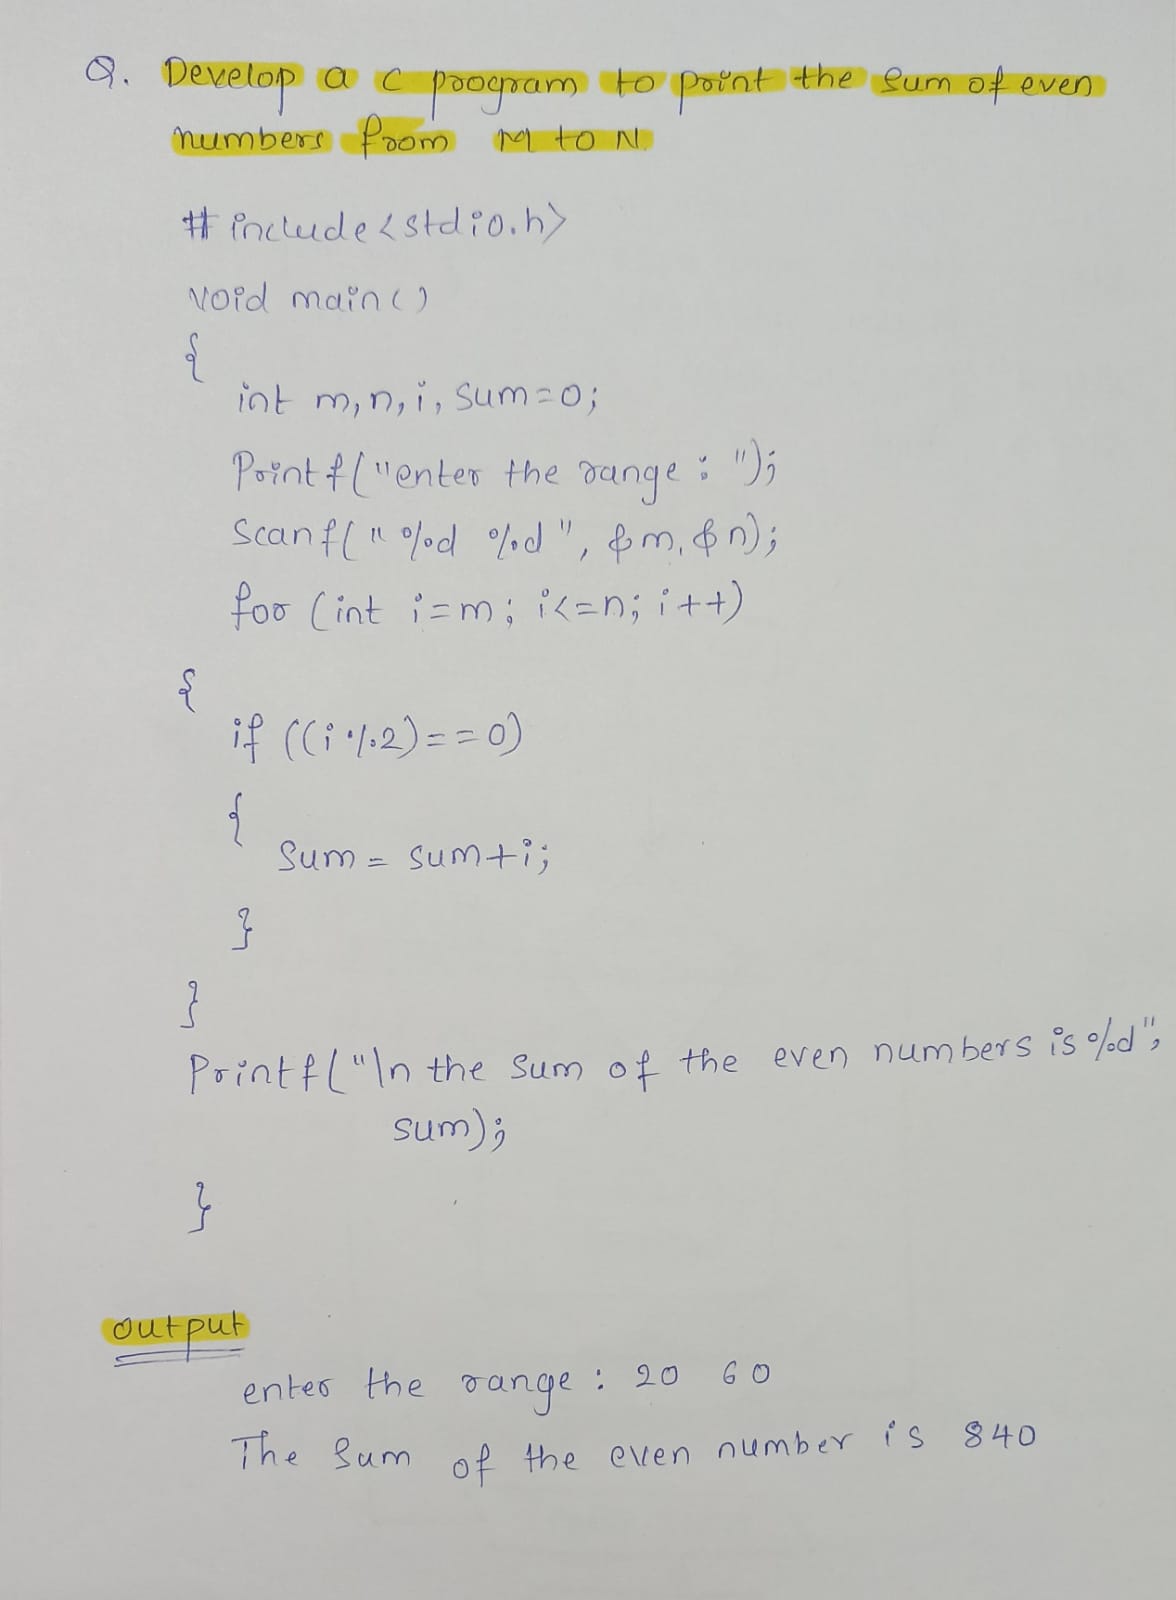 Q. Develop a C program to print the sum of even
numbers from M to N.
# include <stdio.h>
void main()
{
int m,n,i, sum=0;
Printf("enter the range : ");
Scanf("%d %d", &m, &n);
for (int i=m; i<=n; i++)
{
if ((i%2)==0)
{
Sum = sum+i;
}
}
Printf("\n the sum of the even numbers is %d",
sum);
}
output
enter the range : 20 60
The Sum of the even number is 840